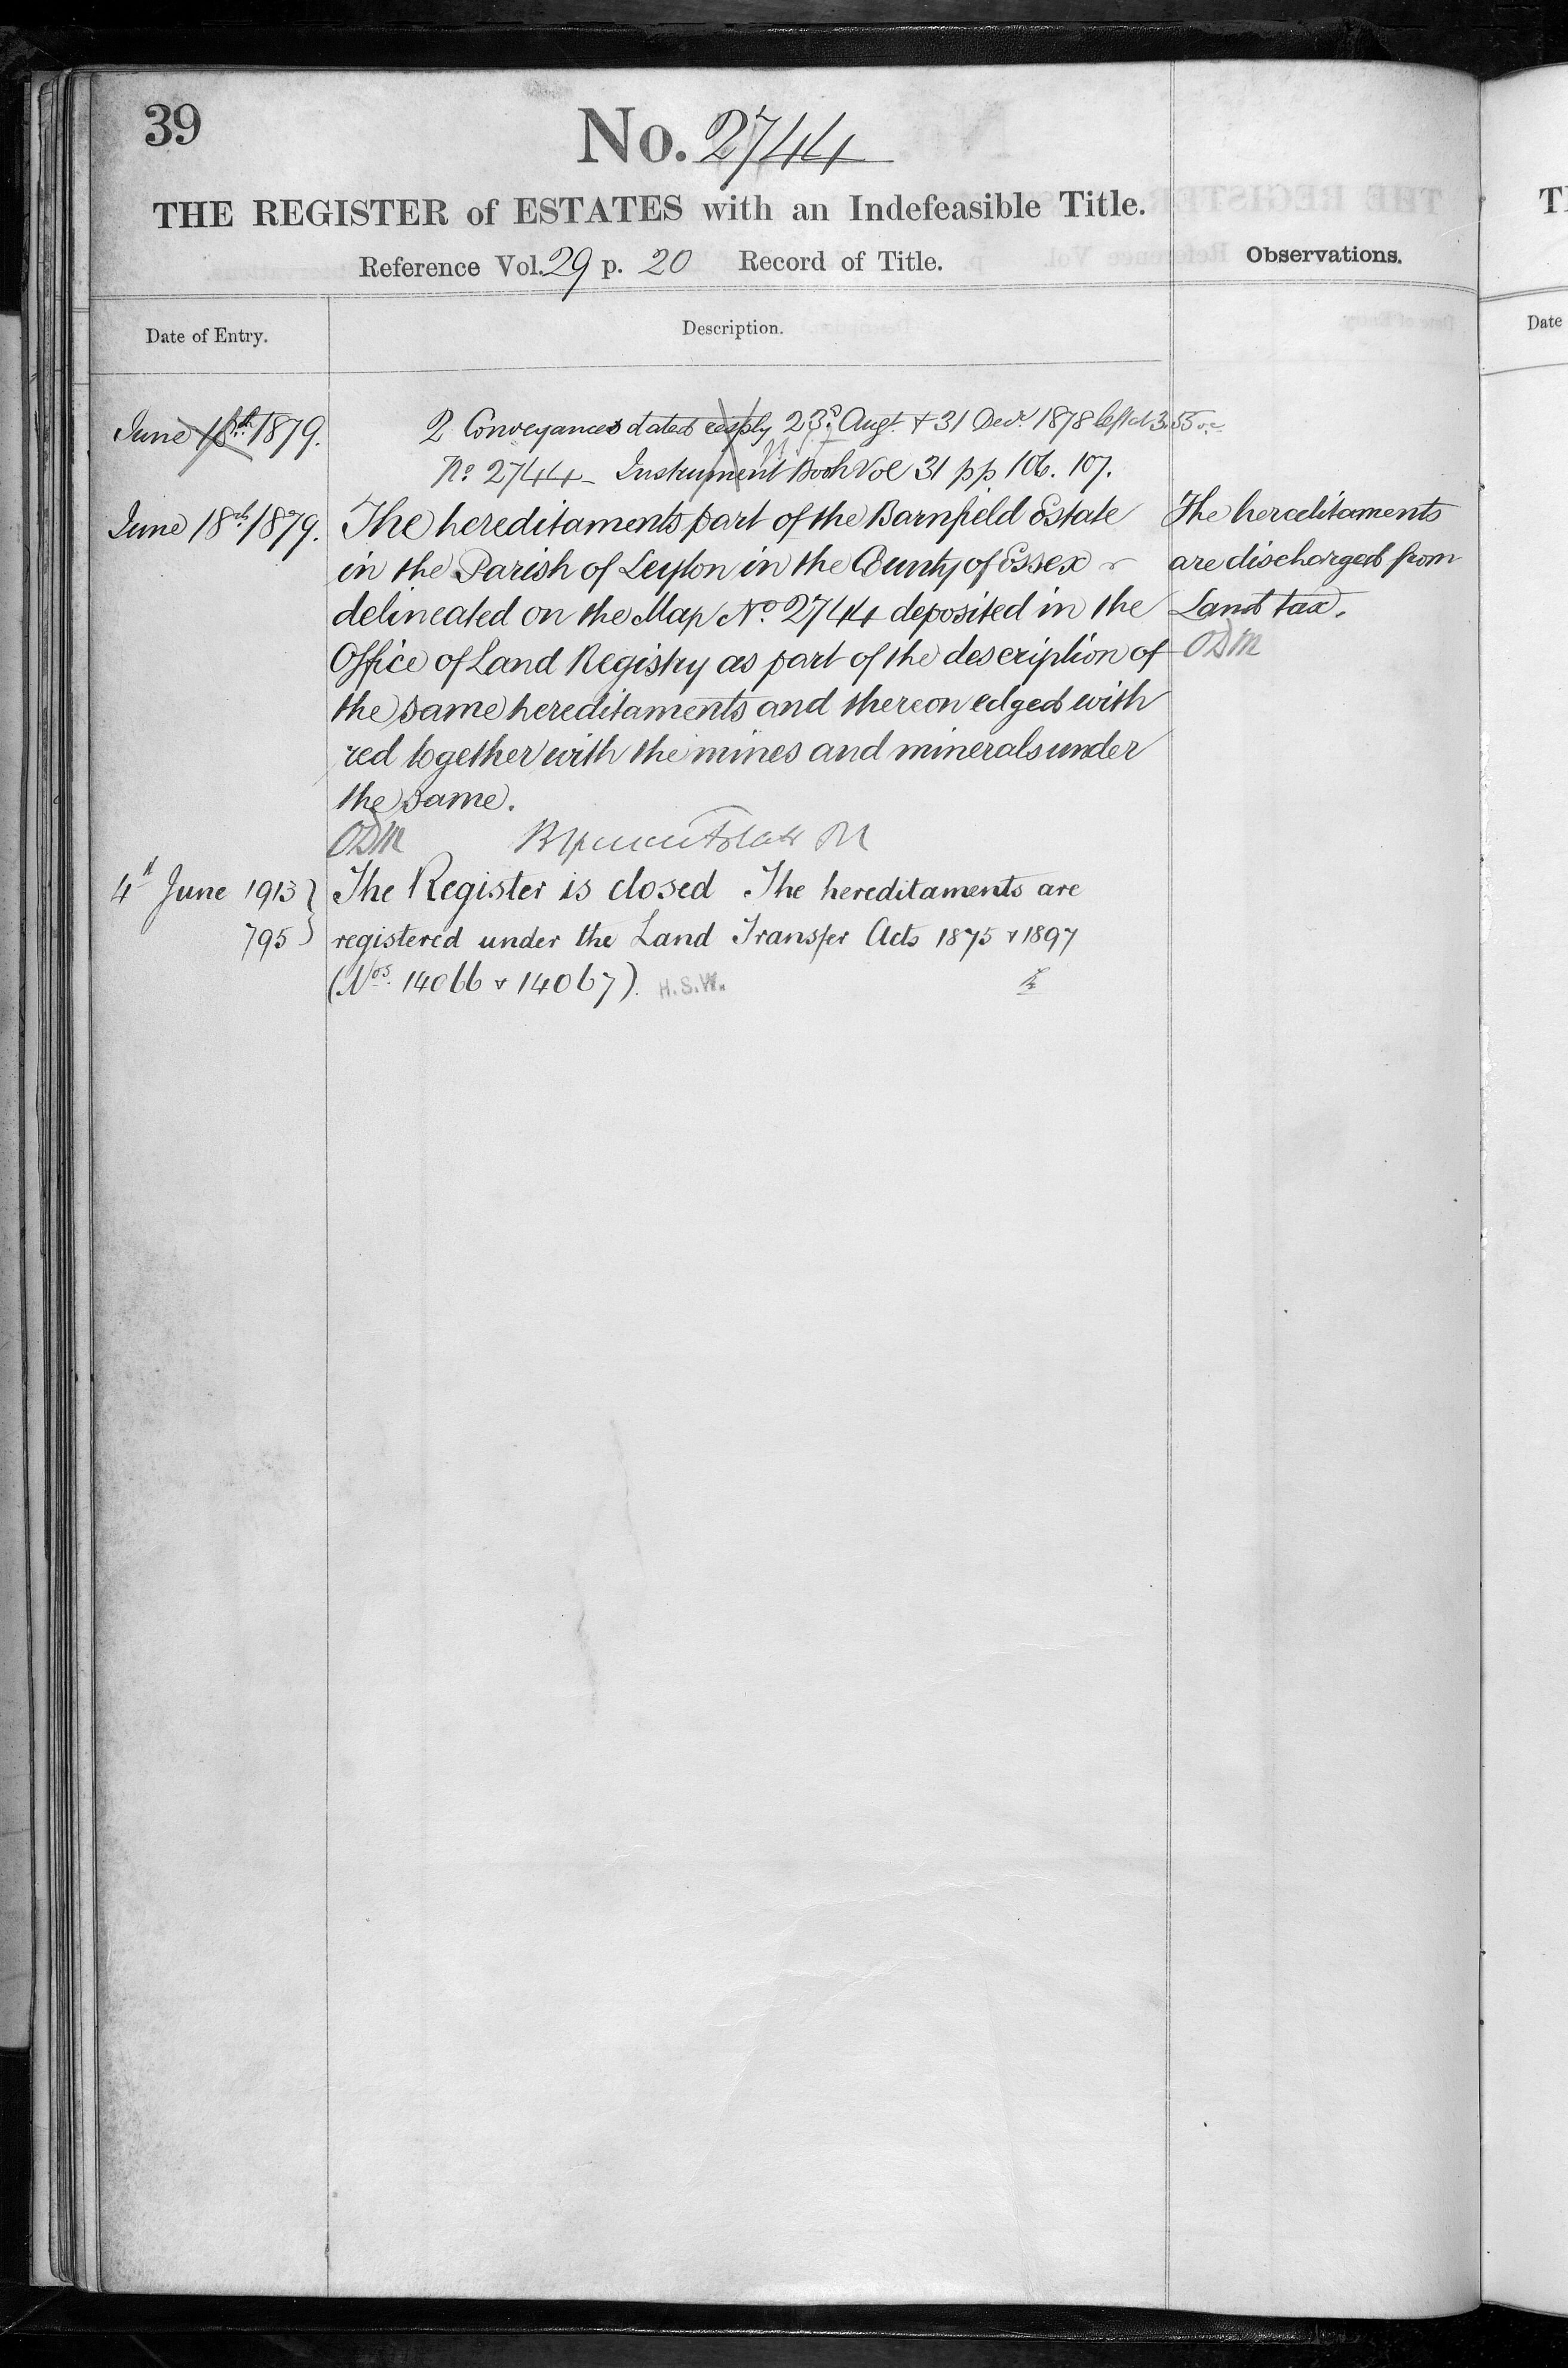 39
No. 2744
THE REGISTER of ESTATES with an Indefeasible Title.
Reference Vol. 29 p. 20 Record of Title.
Observations.
Date of Entry.
Description.
June 18th 1879.
2 Conveyances dated resply 23rd Augt. & 31 Decr 1878 left at 3.55
No. 2744 - Instrument Book Vol 31 pp 106. 107.
June 18th 1879.
The hereditaments part of the Barnfield Estate
in the Parish of Leyton in the County of Essex
delineated on the Map No. 2744 deposited in the
Office of Land Registry as part of the description of
the same hereditaments and thereon edged with
red together with the mines and minerals under
the same.
ODM
The hereditaments
are discharged from
Land tax.
ODM
4th June 1913
795
The Register is closed The hereditaments are
registered under the Land Transfer Acts 1875 & 1897
(Nos. 14066 & 14067). H.S.W.
Date